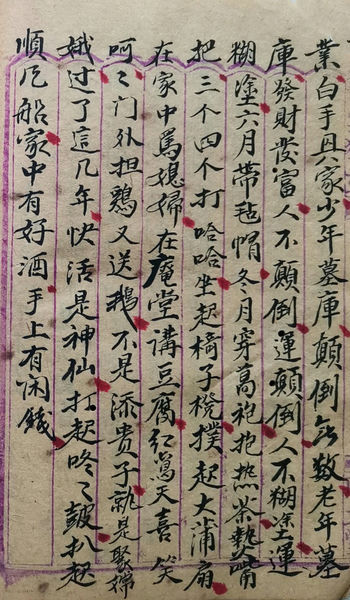 業白手興家少年墓庫顛倒無数老年墓
庫發財發富人不顛倒運顛倒人不糊塗運
糊塗六月帶毡帽冬月穿高袍抱热茶執
把三个四个打哈哈坐起椅子櫈撲起大蒲扇
在家中爲媳婦在庵堂講豆腐紅鸞天喜笑
呵〻门外担鷄又送鵝不是添貴子就是娶婦
娥过了這几年快活是神仙打起咚〻皷扒起
順风船家中有好酒手上有闲錢